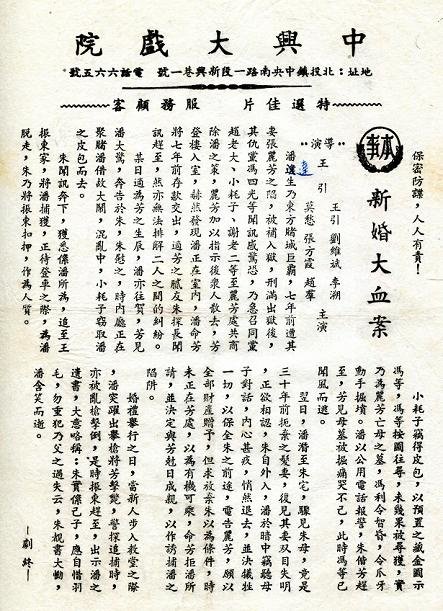 中興大戲院
地址:北投鎮中央南路一段新興巷一號 電話六六五號
特選佳片 服務顧客
保密防諜,人人有責!
本事
新婚大血案
導演:王引
主演 王引 劉維斌 李湘
莫愁 張方霞 趙羣
潘達生乃東方賭城巨霸,七年前遭其
妾張麗芳之陷,被補入獄,刑滿出獄後,
其仇黨馮四光等聞訊咸驚恐,乃急召同黨
趙老大、小耗子、謝老二等至麗芳處共商
除潘之策,麗芳加以指示後衆人散去,芳
登樓入室,赫然發現潘正在室內,潘命芳
將七年前存款交出,適芳之膩友朱探長聞
訊趕至,然亦無法排解二人之間的糾紛。
某日適為芳之生辰,潘亦往賀,芳見
潘大驚,奔告於朱,朱慰之,時內廳正在
聚賭潘借故大鬧,混亂中,小耗子竊取潘
之皮包而去。
朱聞訊奔下,獲悉係潘所為,追至王
振東家,將潘捕獲,正待登車之際,為潘
脫走,朱乃將振東扣押,作為人質。
小耗子竊得皮包,以預置之藏金圖示
馮等,馮等按圖往尋,未幾果被尋獲,實
乃馮麗芳亡母之墓,馮利令智昏,令爪牙
動手掘墳。潘以公用電話報警,朱偕芳趕
至,芳見母墓被掘痛哭不已,此時馮等已
聞風而遁。
翌日,潘潛至朱宅,驟見朱母,竟是
三十年前扼棄之髮妻,後見其妻双目失明
,正欲相認,朱自外入,潘於暗中竊聽母
子對話,內心甚疚,悄然退去,並決犧牲
一切,以保全朱之前途,電告麗芳,願以
全部財產贈予,但求放棄朱以為條件,時
朱正在芳處,以為有機可乘,命芳拒潘所
請,並決定與芳尅日成親,以作誘捕潘之
陷阱。
婚禮舉行之日,當新人步入教堂之際
,潘突躍出舉槍將芳擊斃,警探追捕時,
亦被亂槍擊倒,是時振東趕至,出示潘之
遺書,大意略稱:朱實係己子,應自惜羽
毛,勿重犯乃父之過失云,朱覩書大慟,
潘含笑而逝。
—劇終—